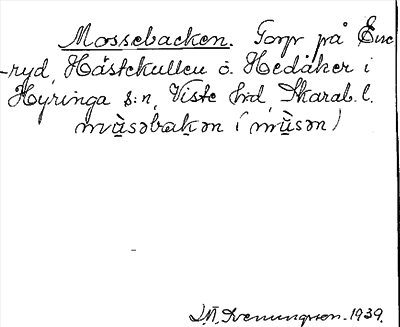 Mossebacken. Torp på Ene
-ryd, Hästekullen o. Hedåker i
Hyringa s:n, Viste hd, Skarab. l.
mùsəbakən (mùsən)
Svenungsson. 1939.